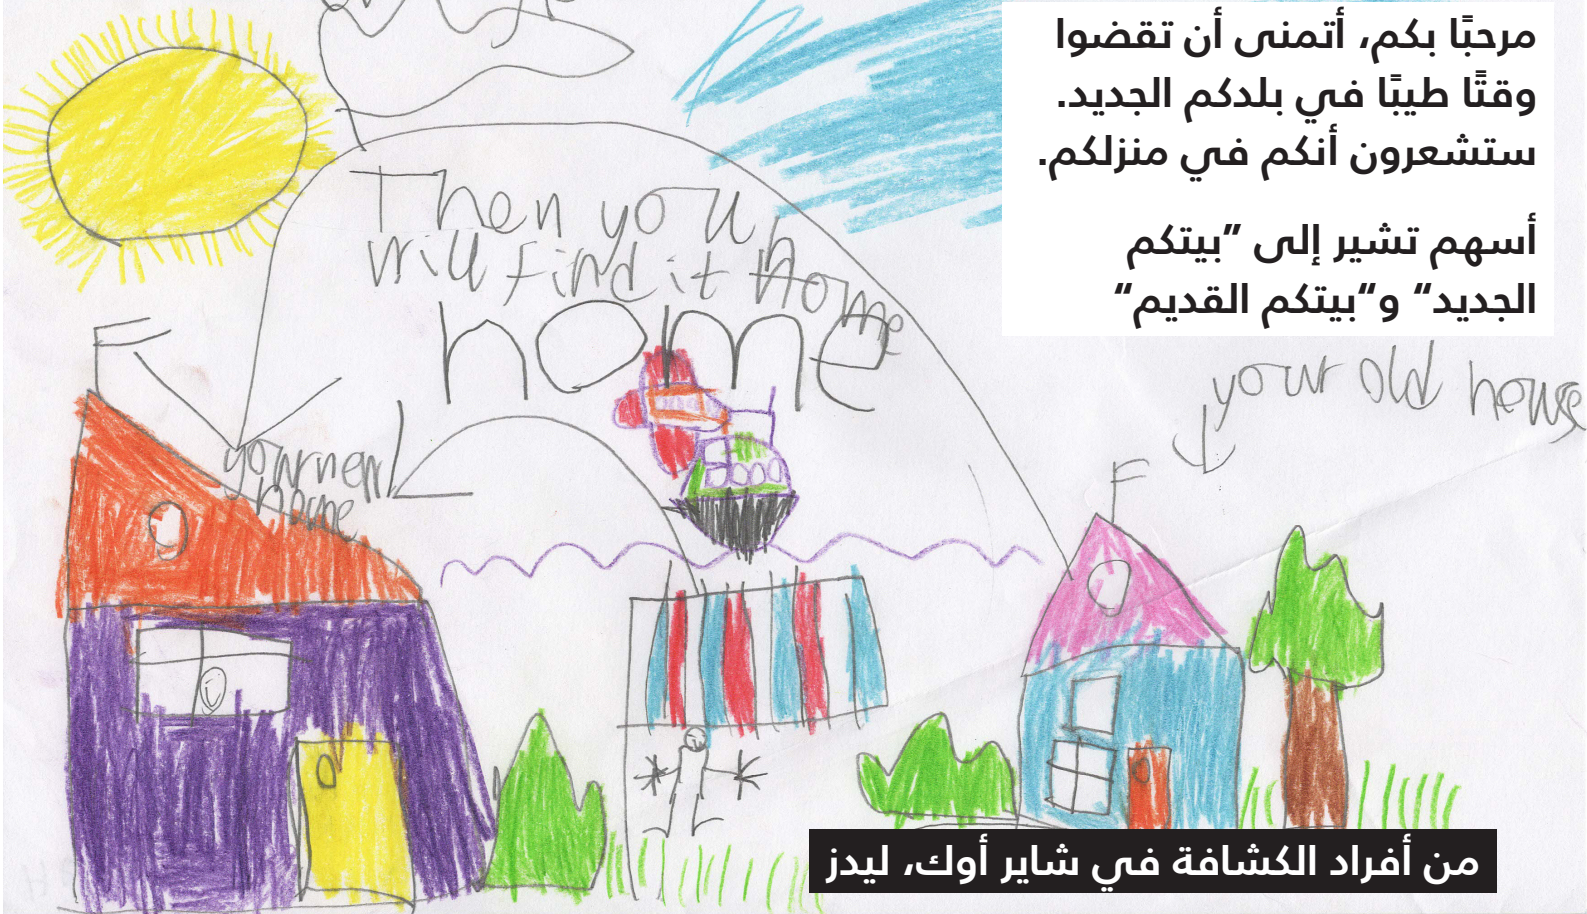 مرحبًا بكم، أتمنى أن تقضوا
وقتًا طيبًا في بلدكم الجديد.
ستشعرون أنكم في منزلكم.
أسهم تشير إلى ”بيتكم
الجديد“ و“بيتكم القديم“
Then you
will find it home
home
your old house
your new
home
من أفراد الكشافة في شاير أوك، ليدز